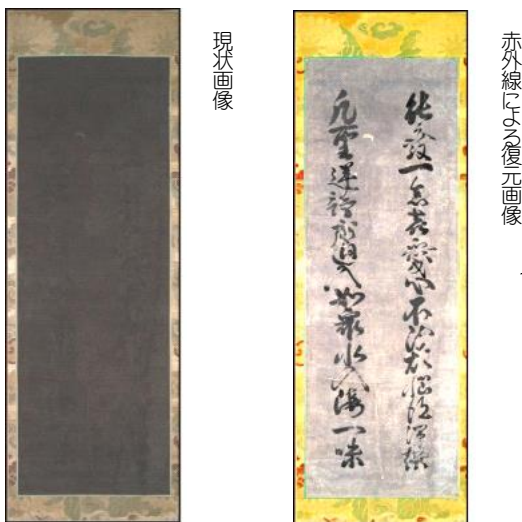 赤外線による復元画像
能發一念喜愛心不断煩悩得涅槃
凡聖逆謗斉廻入如衆水入海一味
現状画像